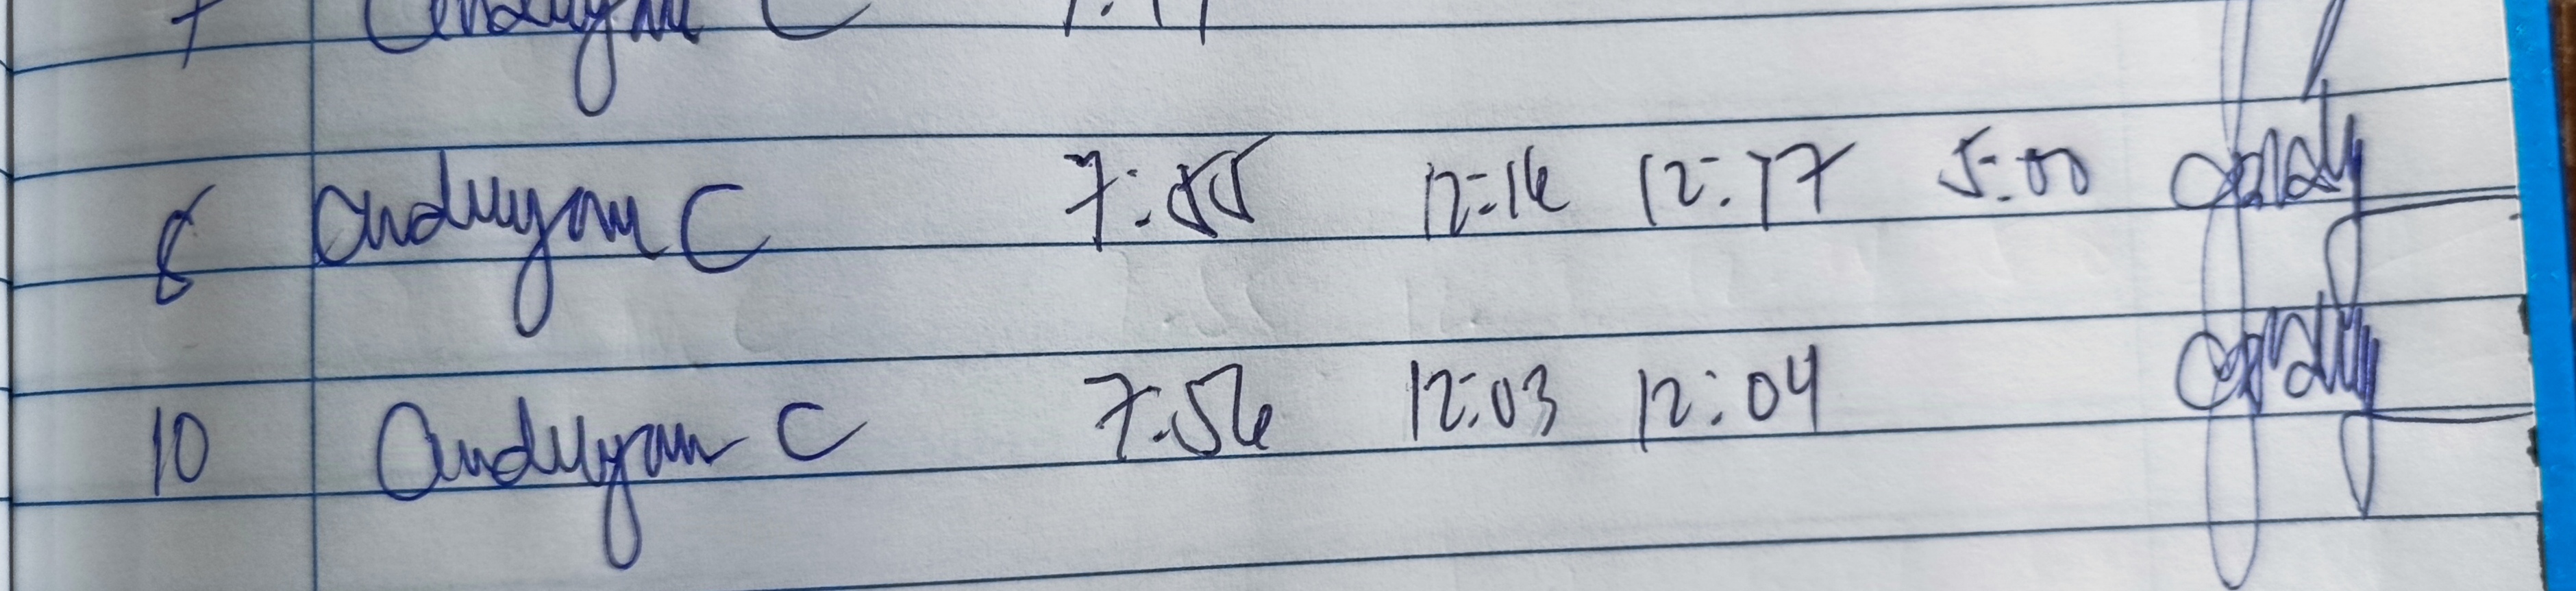 7 Anduyan C
8 Anduyan C 7:55 12:16 12:17 5:00
10 Anduyan C 7:56 12:03 12:04